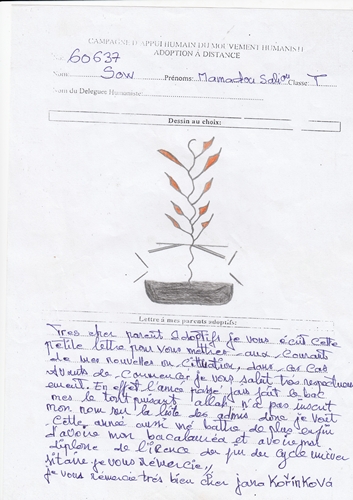 CAMPAGNE D'APPUI HUMAIN DU MOUVEMENT HUMANISTE
ADOPTION À DISTANCE
60637
Nom: Sow Prénoms: Mamadou Saliou Classe: T
Nom du Delegues Humaniste:
Dessin au choix:
Lettre à mes parents adoptifs:
Tres cher parent adoptifs je vous écrit cette
petite lettre pour vous mettres aux courants
de mes nouvelles ou cituation, dans ce cas
Avants de commencer je vous salut tres respectueus
ement. En effet l'anée passé j'ais fait le bac
mes le tout puisant allah n'a pas inscrit
mon nom sur la liste des admis donc je vait
cette année aussi me battre de plus enfin
d'avoire mon bacalauréa et avoire mon
diplome de licence du fin de cycle univer
sitaire je vous remercie //
je vous remercie très bien cher jana Kořínková